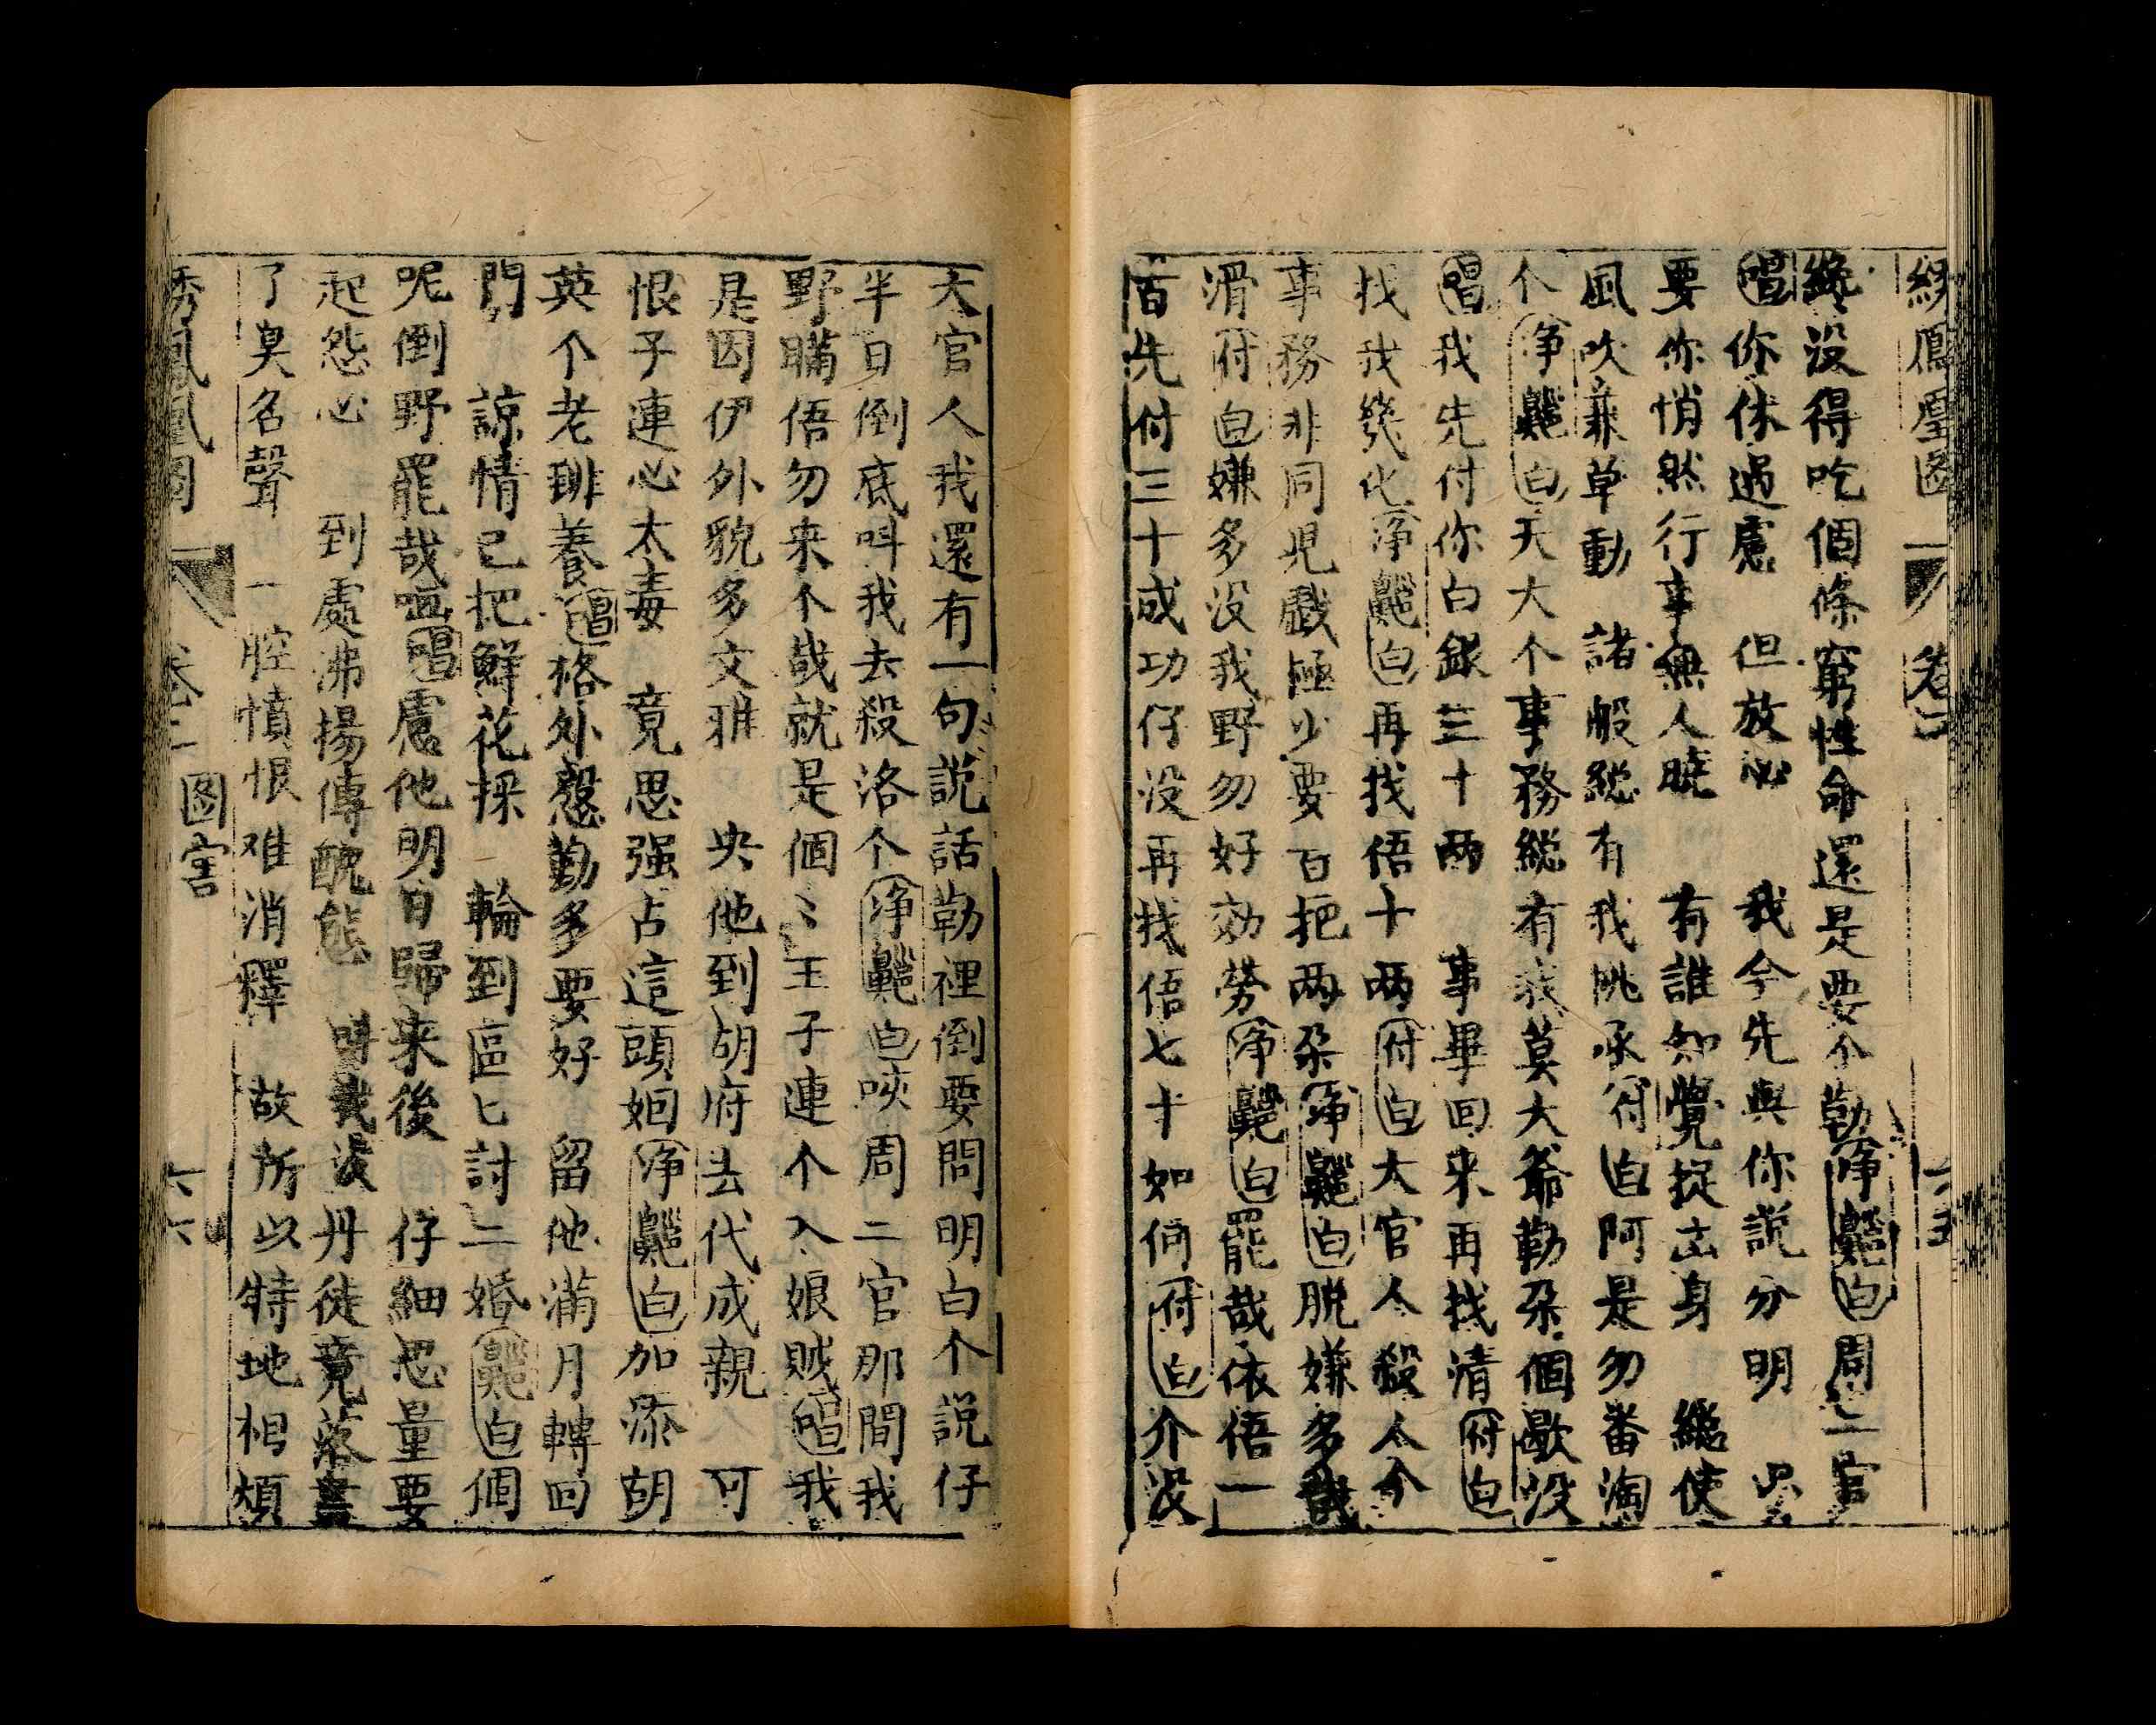 綉鳳凰圖 卷二 六五
緣没得吃個條窮性命還是要个勒淨白周二官
唱你休過慮 但放心 我今先與你説分明 只
要你悄然行事無人曉 有誰知覺捉出身 總使
風吹兼草動 諸般總有我挑承付白阿是勿番淘
个淨白天大个事務總有我莫大爺勒朶個歇没
唱我先付你白銀三十両 事畢回来再找清付白
找我幾化淨白再找俉十両付白大官人殺人今
事務非同児戱極少要百把両朶淨白脱嫌多哉
滑付白嫌多没我野勿好効勞淨白罷哉依俉一
百先付三十成功仔没再找俉七十如何付白介没
大官人我還有一句説話勒裡倒要問明白个説仔
半日倒底呌我去殺洛个淨白㖨周二官那間我
野瞞俉勿来个哉就是個〻王子連个入娘賊唱我
是因伊外貌多文雅 央他到胡府去代成親 可
恨子連心太毒 竟思强占這頭姻淨白加添胡
英个老琲養唱格外慇勤多要好 留他滿月轉回
門 諒情已把鮮花採 輪到區匕討二婚白個
呢倒野罷哉唱慮他明日歸来後 仔細思量要
起怨心 到處沸揚傳醜態 呌我没丹徒竟落
了臭名聲 一腔憤恨难消釋 故所以特地相煩
綉鳳凰圖 卷二 圖害 六六